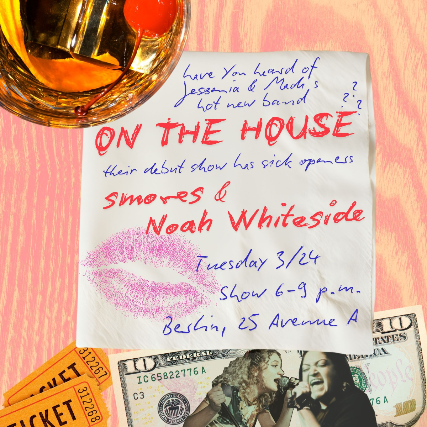 have you heard of
Jessamia & Medi's ?
hot new band ? ?
ON THE HOUSE
their debut show has sick openers
smores &
Noah Whiteside
Tuesday 3/24
Show 6-9 p.m.
Berlin, 25 Avenue A
10 FEDERAL 10
STATES
IC65822776A
C3
312267
TICKET
312268
TICKET